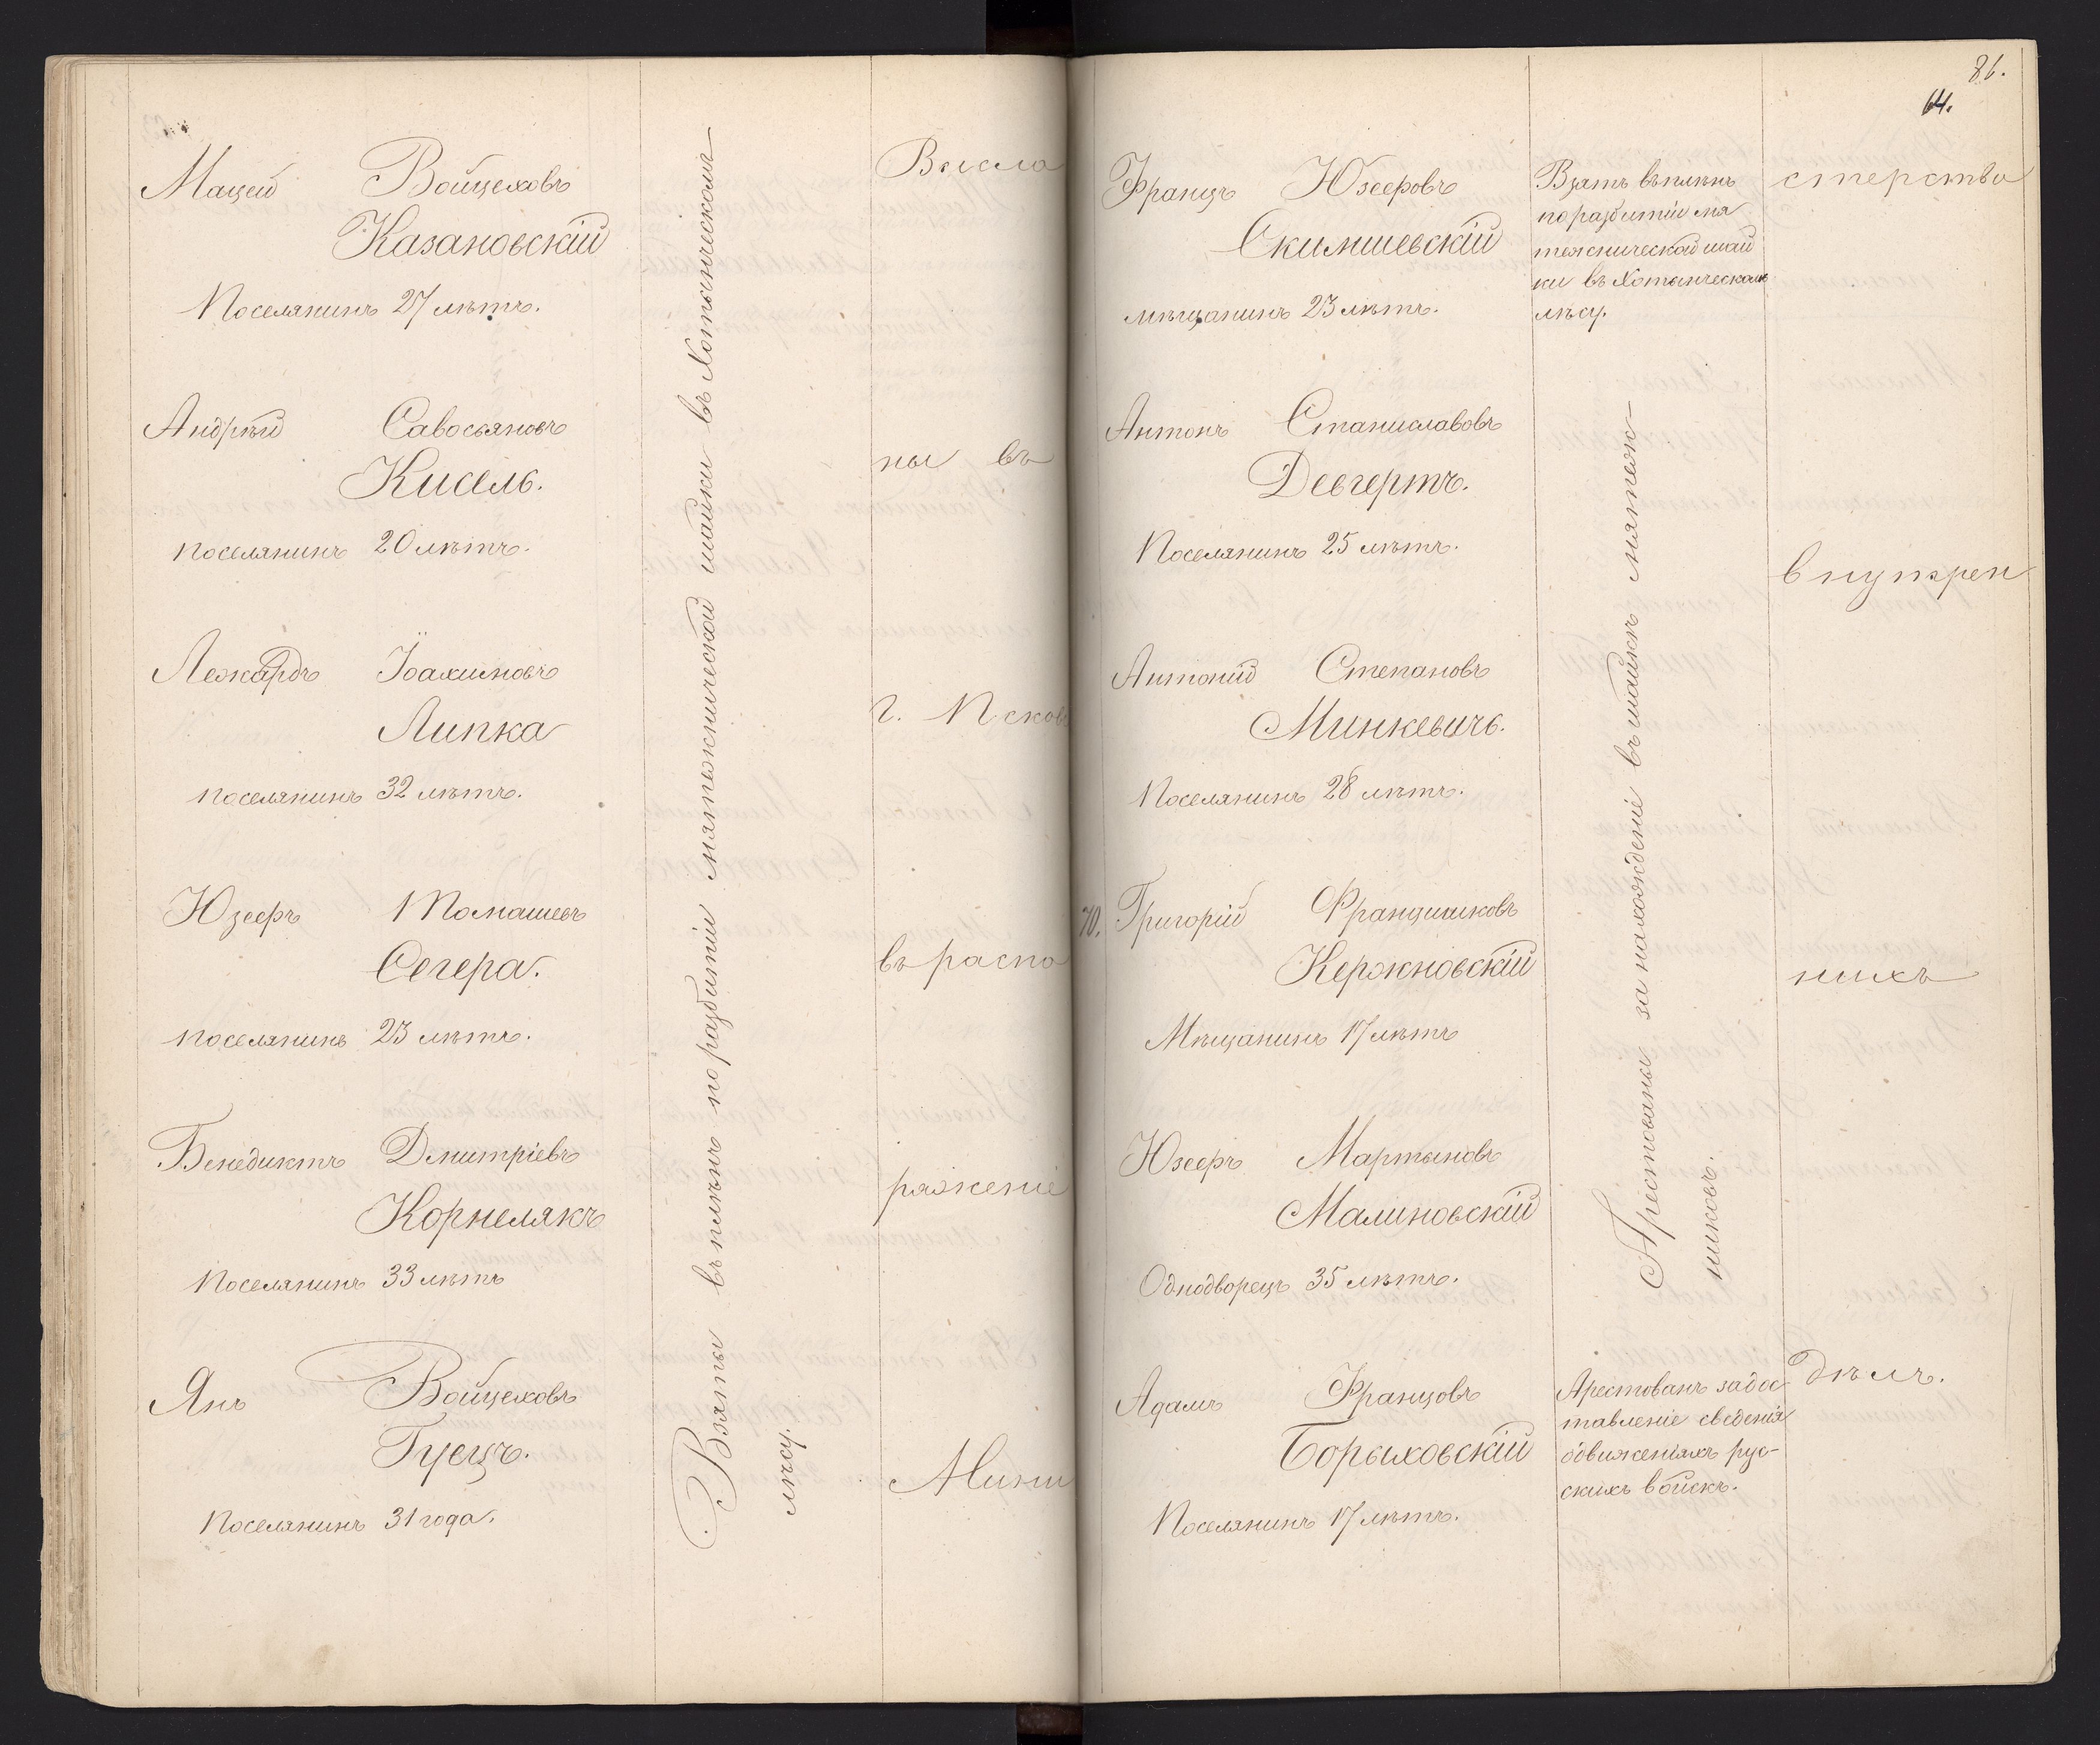 Мацей Войцеховъ
Казановскій
Поселянинъ 27 лѣтъ.
Андрей Савосьяновъ
Кисель.
поселянинъ 20 лѣтъ.
Іоахимовъ
Липка
поселянинъ 32 лѣтъ.
Юзефъ Томашевъ
Сегера.
поселянинъ 23 лѣтъ.
Бенедиктъ Дмитріевъ
Корнелякъ
Поселянинъ 33 лѣтъ
Янъ Войцеховъ
Гуецъ.
Поселянинъ 31 года.
Взяты въ плѣнъ по разбитіи мятежнической шайки въ Хотыническомъ
лѣсу.
Высла
ны въ
г. Псковъ
въ распо
ряженіе
Мини
81.
64.
Францъ Юзефовъ
Скимшевскій
мѣщанинъ 23 лѣтъ.
Взятъ въ плѣнъ
по разбитіи мя
тежнической шай
ки въ Хотыническомъ
лѣсу.
стерства
Антонъ Станиславовъ
Девгертъ.
Поселянинъ 25 лѣтъ.
внутрен
Антоній Степановъ
Минкевичъ.
Поселянинъ 28 лѣтъ.
70. Григорій Францишковъ
Кержновскій
Мѣщанинъ 17 лѣтъ
нихъ
Юзефъ Мартыновъ
Малиновскій
Однодворецъ 35 лѣтъ.
Арестованы за нахожденіе въ шайкѣ мятеж-
никовъ.
Адамъ Францовъ
Борыховскій
Поселянинъ 17 лѣтъ.
Арестованъ за дос
тавленіе сведенія
о движеніяхъ рус-
скихъ войскъ.
дѣлъ.